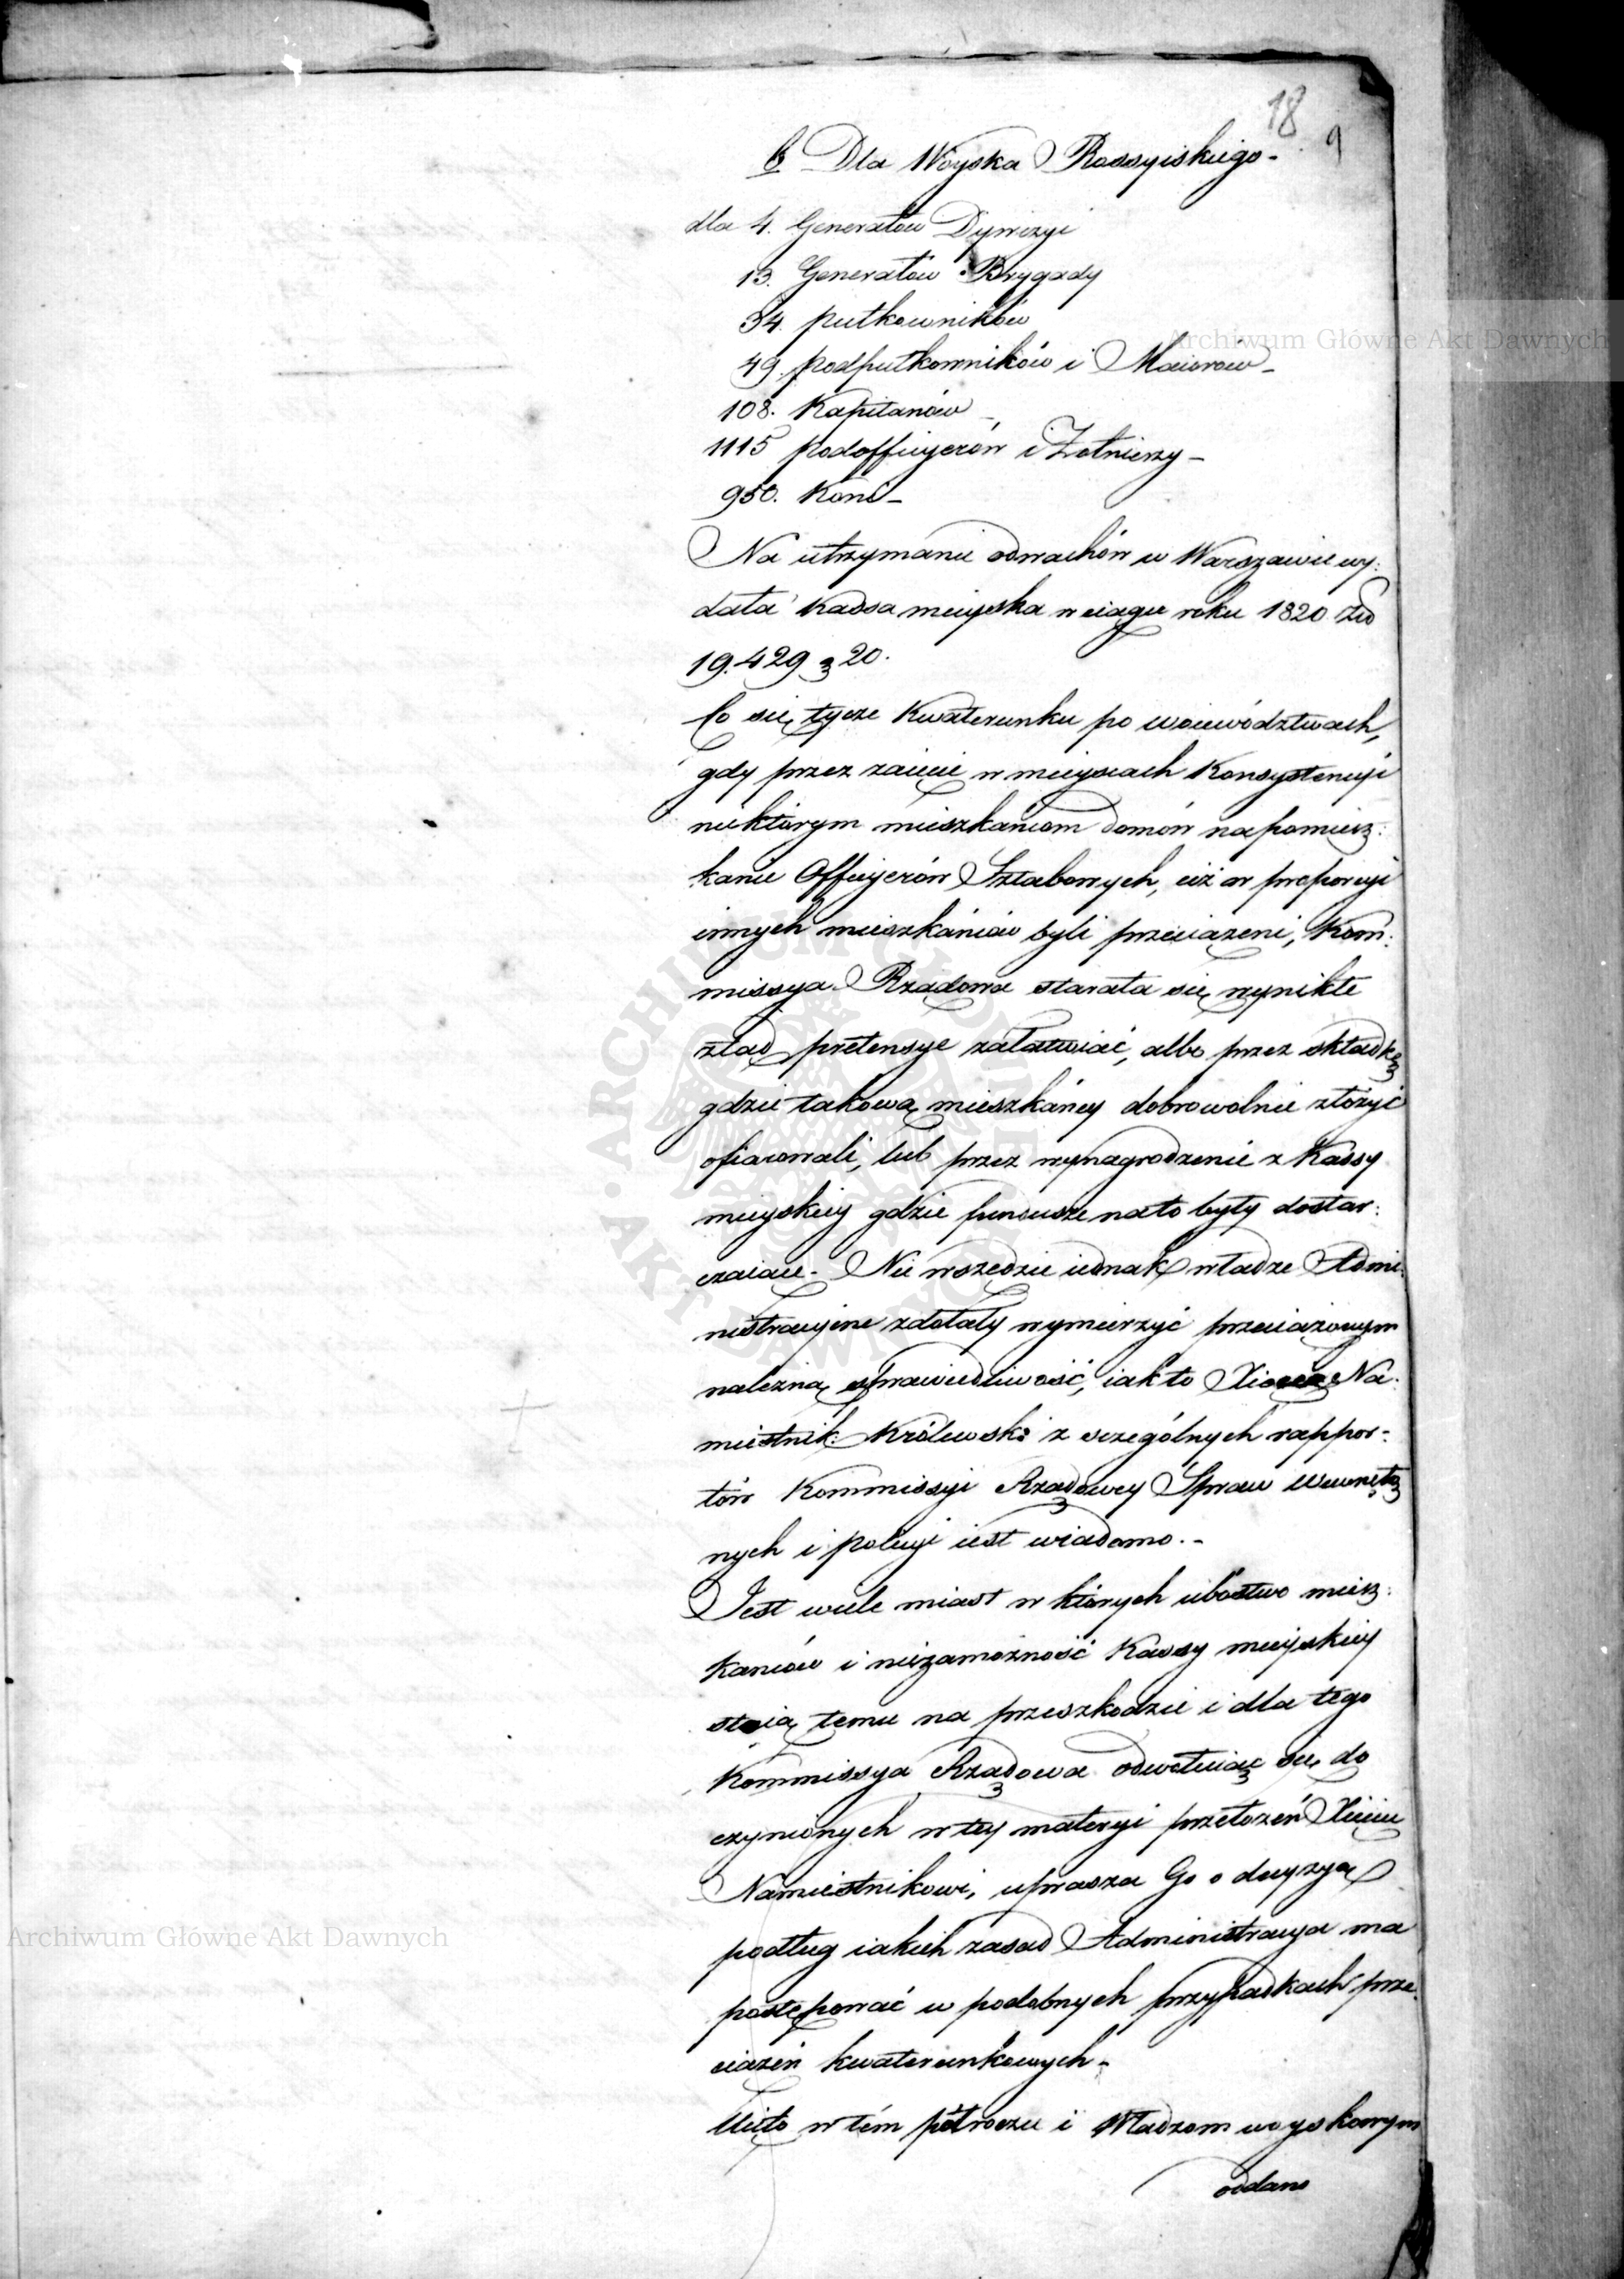 18
9
b Dla Woyska Rossyiskiego-
dla 4. Generałów Dywizyi
13. Generałów Brygady
34. pułkowników
49. podpułkowników i Maiorow-
108. Kapitanów-
1115 podofficyerów i Żołnierzy-
950. Koni-
Na utrzymanie odwachów w Warszawie wy:
dała Kassa mieyska w ciągu roku 1820 Złº
19.429 g 20.
Co się tycze Kwaterunku po woiewództwach,
gdy przez zaięcie w mieyscach Konsystencyi
niektórym mieszkańcom domów na pomiesz:
kanie Officyerów Sztabowych, ciż w proporcyi
innych mieszkańców byli przeciążeni, Kom:
missya Rządowa starała się wynikłe
ztąd pretensye załatwiać, albo przez składkę
gdzie takową mieszkańcy dobrowolnie złożyć
ofiarowali, lub przez wynagrodzenie z Kassy
mieyskiey gdzie fundusze na to były dostar:
czaiące. Nie wszędzie iednak władze Admi:
nistracyine zdołały wymierzyć przeciążonym
należną sprawiedliwość, iak to Na:
miestnik: Królewski z sczególnych rappor:
tów Kommissyi Rządowey Spraw Wewnętrz
nych i policyi iest wiadomo.-
Jest wiele miast w których ubóstwo miesz:
kańców i niezamożność Kassy mieyskiey
stoią temu na przeszkodzie i dla tego
Kommissya Rządowa odwołuiąc się do
czynionych w tey materyi przełożeń Xięciu
Namiestnikowi, uprasza Go o decyzyą
podług iakich zasad Administracya ma
postępować w podobnych przypadkach prze:
ciążeń kwaterunkowych-
Wiele w tém półroczu i Władzom woyskowym
oddano
Archiwum Główne Akt Dawnych
Archiwum Główne Akt Dawnych
ARCHIWUM GŁÓWNE AKT DAWNYCH